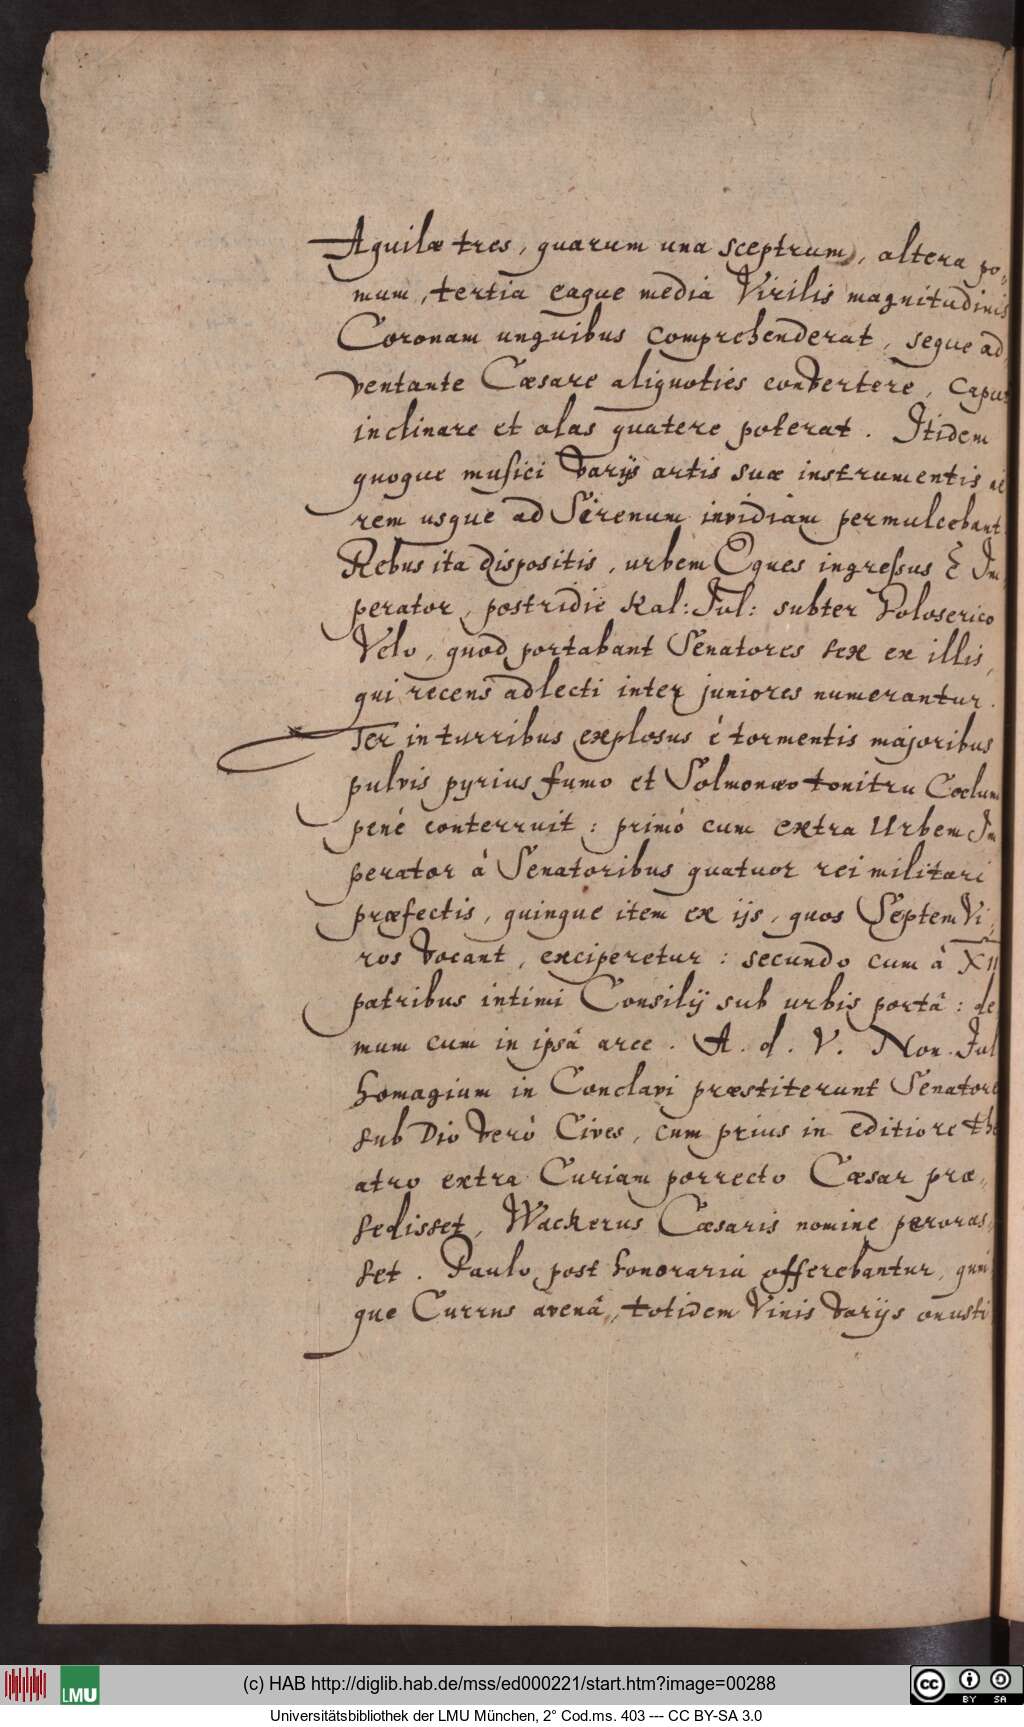 Aquilæ tres, quarum una sceptrum, altera po,,
mum, tertia eaque media Virilis magnitudinis
Coronam unguibus comprehenderat, seque ad
ventante Cæsare aliquoties convertere, caput
inclinare et alas quatere poterat. Itidem
quoque musici varijs artis suæ instrumentis aë
rem usque ad Sirenum invidiam permulcebant
Rebus ita dispositis, urbem Eques ingressus E Im
perator, postridie Kal: Jul: subter holoserico
Velo, quod portabant Senatores sex ex illis,
qui recens adlecti inter juniores numerantur.
Ter in turribus explosus è tormentis majoribus
pulvis pyrius fumo et Solmonæo tonitru Coelum
penè conterruit: primò cum extra Urbem Im
perator à Senatoribus quatuor rei militari
præfectis, quinque item ex ijs, quos Septem Vi,
ros vocant, exciperetur: secundo cum à XII
patribus intimi Consilij sub urbis portâ: de
mum cum in ipsâ arce. A. d. V. Non. Jul
homagium in Conclavi præstiterunt Senatore
sub Dio verò Cives, cum prius in editiore the
atro extra Curiam porrecto Cæsar præ,,
sedisset, Wackerus Cæsaris nomine peroras,
set. Paulo post honoraria offerebantur, quin
que Currus avenâ, totidem Vinis varijs onusti
(c) HAB http://diglib.hab.de/mss/ed000221/start.htm?image=00288
Universitätsbibliothek der LMU München, 2° Cod.ms. 403 --- CC BY-SA 3.0
LMU
cc BY SA